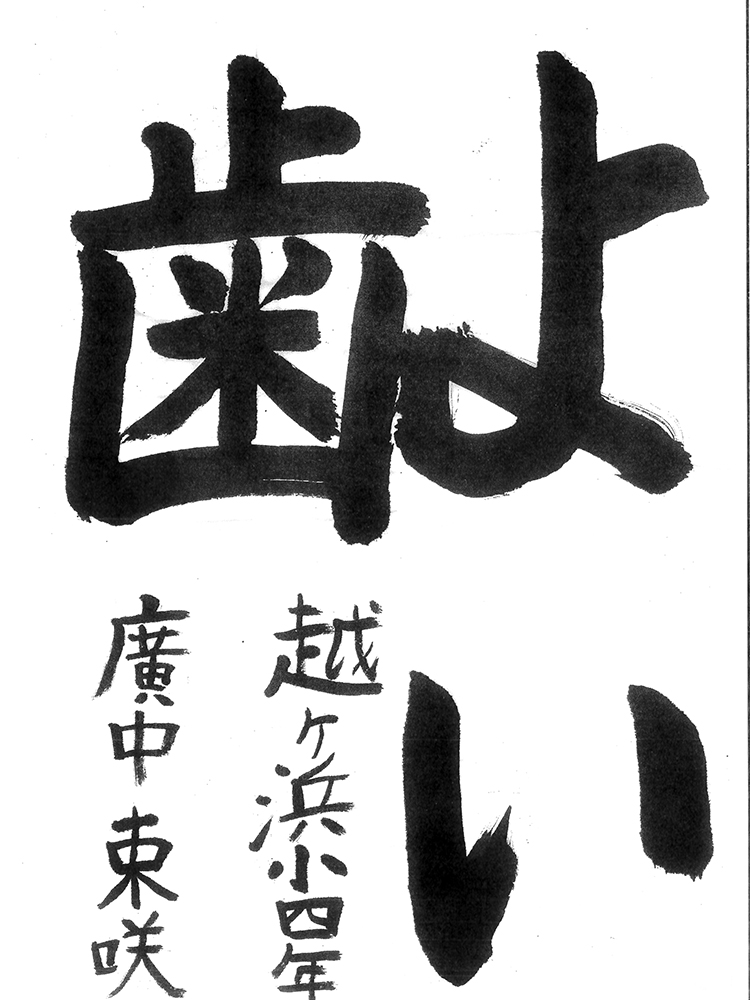 よい
歯
越ヶ浜小四年
廣中東咲